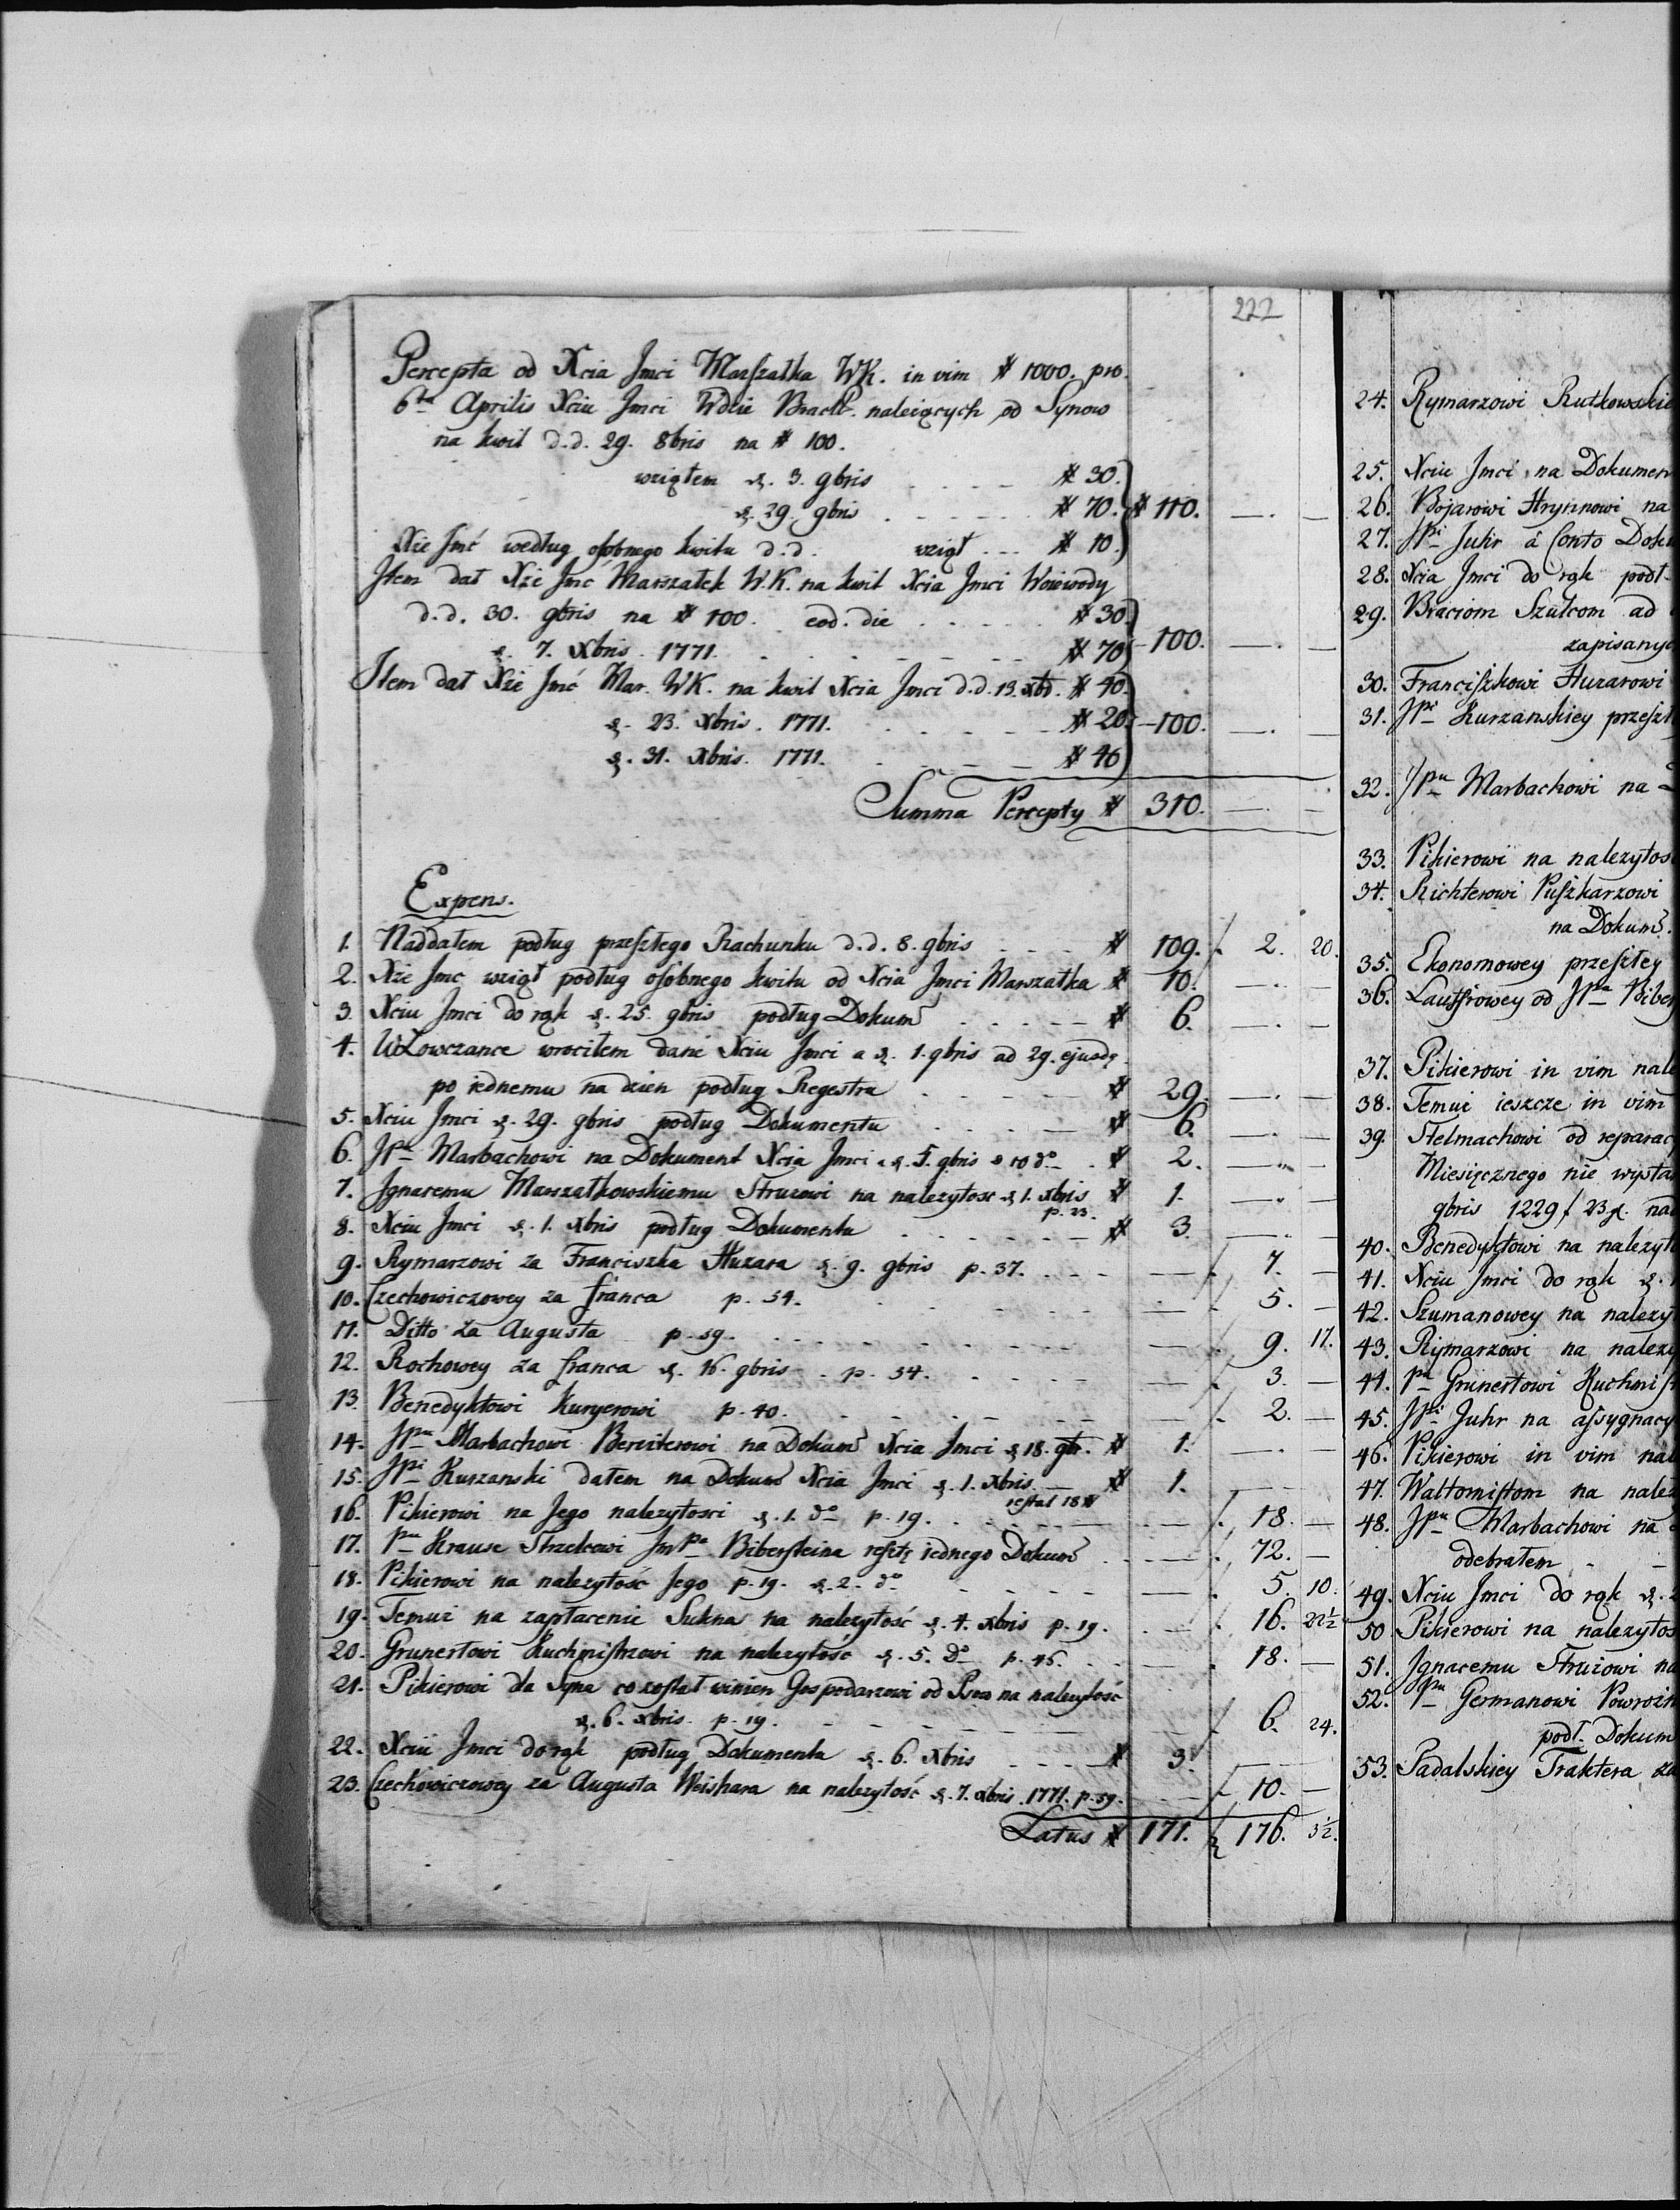 222
Percepta od Xcia Jmci Marszałka WK. in vim # 1000. pro.
6ta Aprilis Xciu Jmci Wdzie Bracł. nalezących od Synow
na kwit d.d. 29. 8bris na # 100.
wziąłem d. 3. 9bris # 30.
d. 29. 9bris # 70. # 110. —. —
Xże Jmć według osobnego kwitu d.d. wziął # 10.
Item dał Xże Jmć Marszałek W.K. na kwit Xcia Jmci Woiewody
d.d. 30. 9bris na # 100. eod. die # 30.
d. 7. Xbris 1771. # 70 100. —. —
Item dał Xże Jmć Mar. WK. na kwit Xcia Jmci d.d. 13. xbr. # 40.
d. 23. Xbris. 1771. # 20. 100. —. —
d. 31. Xbris. 1771. # 40
Summa Percepty # 310. —. —
Expens.
1. Naddałem podług przeszłego Rachunku d.d. 8. 9bris # 109. 2. 20.
2. Xże Jmc wziął podług osobnego kwitu od Xcia Jmci Marszałka # 10. —. —
3. Xciu Jmci do rąk d. 25. 9bris podług Dokum # 6. —. —
4. WŁowczance wrociłem dane Xciu Jmci a d. 1. 9bris ad 29. ejusd.
po iednemu na dzien podług Regestru # 29. —. —
5. Xciu Jmci d. 29. 9bris podług Dokumentu # 6. —. —
6. JPu Marbachowi na Dokument Xcia Jmci d. 5. 9bris 10 do # 2. —. —
7. Jgnacemu Marszałkowskiemu Struzowi na nalezytosc d. 1. xbris # 1. —. —
p. 23.
8. Xciu Jmci d. 1. xbris podług Dokumentu # 3. —. —
9. Rymarzowi za Franciszka Huzara d. 9. 9bris p. 37. — 7. —
10. Czechowiczowey za franca p. 54. — 5. —
11. Ditto za Augusta p. 59. — 9. 17.
12. Rochowey za franca d. 16. 9bris p. 54. — 3. —
13. Benedyktowi Kuryerowi p. 40. — 2. —
14. JPu Marbachowi Bereiterowi na Dokum Xcia Jmci d. 18. 9br. # 1. —. —
15. JPi Kurzanski dałem na Dokum Xcia Jmci d. 1. xbris. # 1. — —
restat 18 #
16. Pikierowi na Jego nalezytosci d. 1. do p. 19. — 18. —
17. Pu Krause Strzelcowi JmPa Bibersteina resztę iednego Dokum — 72. —
18. Pikierowi na nalezytość Jego p. 19. d. 2. do — 5. 10.
19. Temuż na zapłacenie Sukna na nalezytość d. 4. xbris p. 19. — 16. 22½
20. Grunertowi Kuchmistrzowi na nalezytość d. 5. do p. 46. — 18. —
21. Pikierowi dla Syna co został winien Gospodarzowi od Psow na nalezytość
d. 6. xbris. p. 19. — 6. 24.
22. Xciu Jmci do rąk podług Dokumentu d. 6. Xbris # 3. — —
23. Czechowiczowey za Augusta Weishara na nalezytość d. 7. xbris. 1771. p. 59. — 10. —
Latus # 171. 176. 3½.
24. Rymarzowi Rutkowskie
25. Xciu Jmci na Dokumen
26. Bojarowi Hrynnowi na
27. JPi Juhr á Conto Doku
28. Xcia Jmci do rąk podł
29. Braciom Szulcom ad
zapisany
30. Franciszkowi Huzarowi
31. JPi Kurzanskiey przeszł
32. JPu Marbachowi na
33. Pikierowi na nalezytos
34. Richterowi Puszkarzowi
na Dokum.
35. Ekonomowey przeszłey
36. Lauffrowey od JPa Biber
37. Pikierowi in vim nale
38. Temuż ieszcze in vim
39. Stelmachowi od reparac
Miesięcznego nie wysta
9bris 1229 f 23 g. na
40. Benedyktowi na nalezyt
41. Xciu Jmci do rąk d.
42. Szumanowey na nalezy
43. Rymarzowi na nalezy
44. Pu Grunertowi Kuchmis
45. JPi Juhr na assygnacy
46. Pikierowi in vim nal
47. Waltornistom na nalez
48. JPu Marbachowi na
odebrałem
49. Xciu Jmci do rąk d.
50. Pikierowi na nalezytos
51. Jgnacemu Struzowi na
52. Pu Germanowi Powroźn
podł. Dokum
53. Padalskiey Traktera za